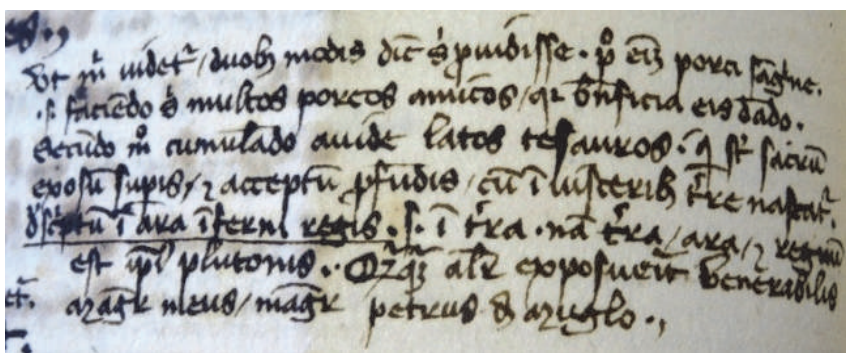 es.,
vt m̄ videt᷑ / duobȝ modis dic̄ s᷑ p̱uidisse · p̊ eı̄ȝ porci sāg̅ne.
.s. faciēdo s᷑ multos porcos amicos / qr̄ bn̄ficia eis dādo.
Secūdo m̊ cumulādo auide latos tesauros. i. q̄ st̄ sacrū
exposū supis / ⁊ acceptū p̱fūdis / cū ī uısceribȝ t̄re nascāt᷑.
dsc̄ptū ī ara īferni regis .s. ī t̄ra · nā t̄ra / ara / ⁊ regnū
est ip̄ı plutonis.
alr̄ exposuerīt venerabilis
et᷑.
magr̄ meus / magr̄ petrus d̄ muglo.,